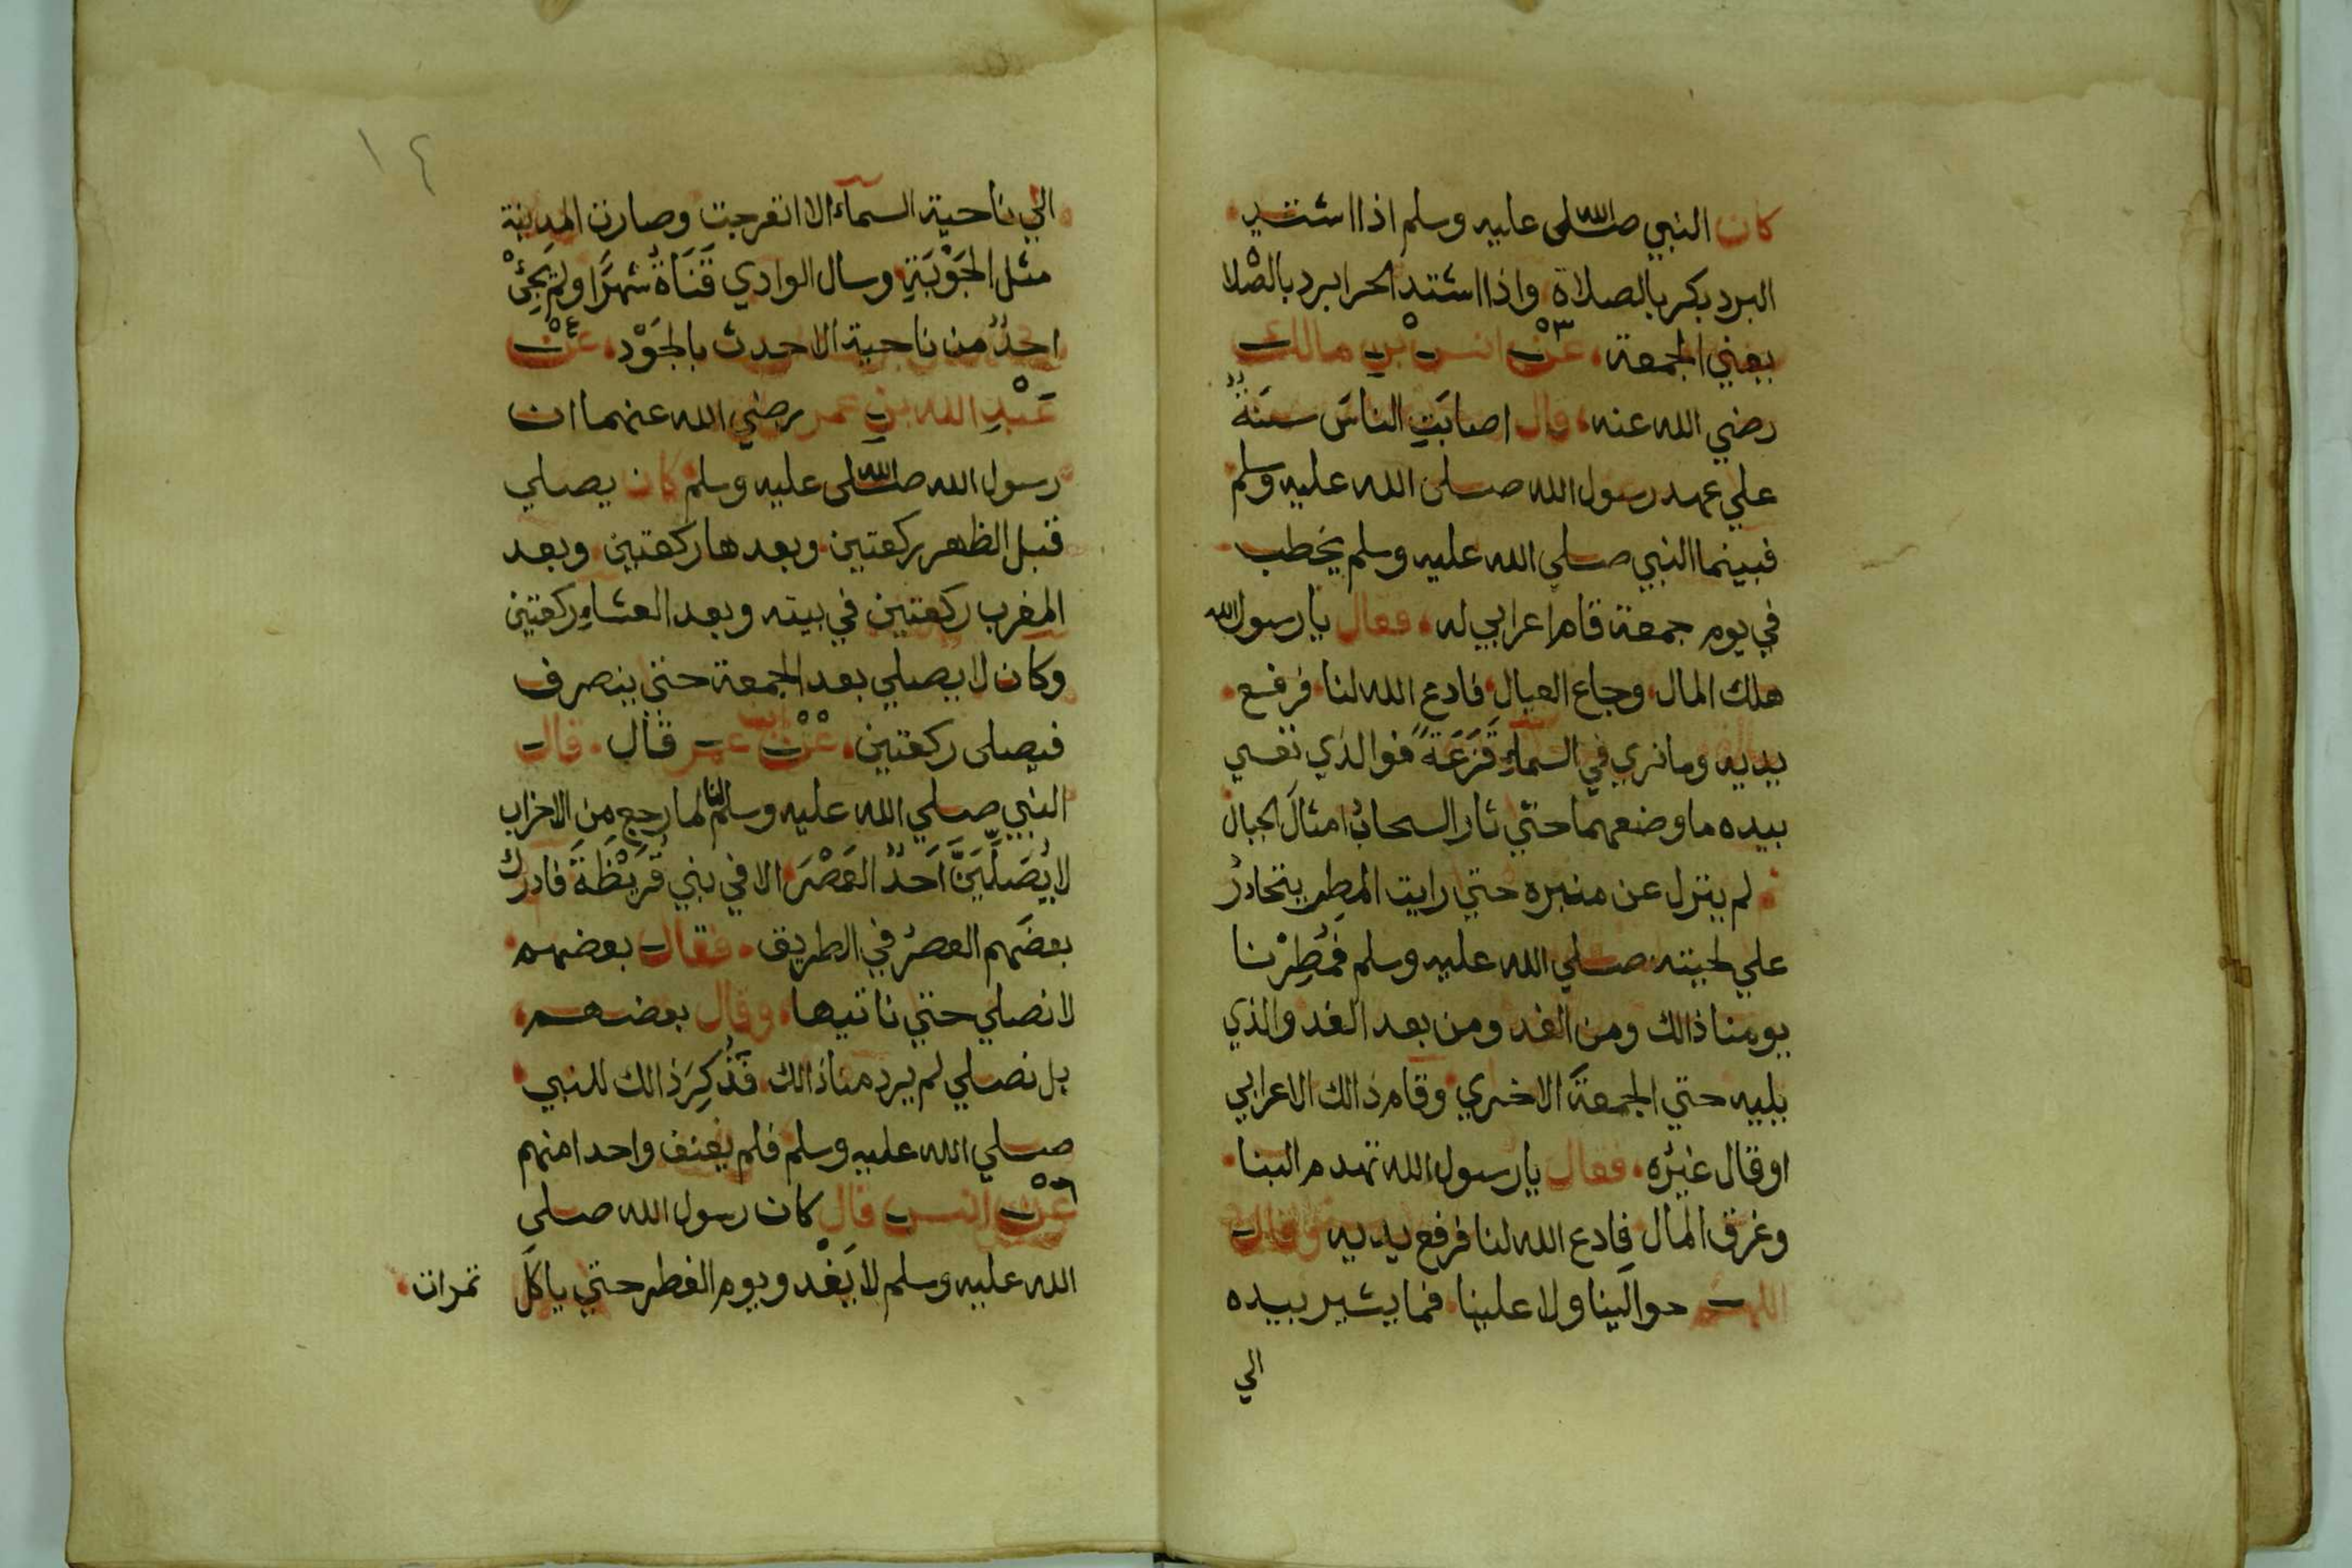 كان النبي صلى الله عليه وسلم اذا اشتد
البرد بكر بالصلاة واذا اشتد الحر ابرد بالصلا
يعني الجمعة عن ٣ انس بن مالك
رضي الله عنه قال اصابَتِ الناسَ سَنَةٌ
علي عهد رسول الله صلى الله عليه وسلم
فبينما النبي صلي الله عليه وسلم يخطب
في يوم جمعة قام اعرابي له فقال يا رسول الله
هلك المال وجاع العيال فادع الله لنا فرفع
يديه وما نري في السماءِ قَزَعَةً فوالذي نفسي
بيده ما وضعهما حتي ثار السحابُ امثالَ الجبال
لم ينزل عن منبره حتي رايت المطر يتحادرُ
علي لحيته صلي الله عليه وسلم فمُطِرْنا
يومنا ذالك ومن الغد ومن بعد الغد والذي
يليه حتي الجمعةَ الاخري وقام ذالك الاعرابي
او قال غيرُه فقال يا رسول الله تهدم البنا
وغرق المال فادع الله لنا فرفع يديه وقال
اللهم حوالَينا ولا علينا فما يشير بيده
الي
١٤
الي ناحية السماء الا انفرجت وصارت المدينة
مثل الجَوْبَةِ وسال الوادي قَنَاةُ شهرًا ولم يَجِئْ
احدٌ من ناحية الا حدث بالجَوْد عن ٤
عَبْدِ الله بنِ عمر رضي الله عنهما ان
رسول الله صلى الله عليه وسلم كان يصلي
قبل الظهر ركعتين وبعدها ركعتين وبعد
المغرب ركعتين في بيته وبعد العشاءِ ركعتين
وكان لا يصلي بعد الجمعة حتي ينصرف
فيصلى ركعتين عَنْ ٥ ابن عمر قال قال
النبي صلي الله عليه وسلم لنا لما رجع مِنَ الاحزاب
لا يُصَلِّيَنَّ اَحَدٌ العَصْرَ الا في بني قُرَيْظَةَ فادرك
بعضَهم العصرُ في الطريق فقال بعضهم
لا نصلي حتي ناتيها وقال بعضهم
بل نصلي لم يرد منا ذالك فَذُكِرَ ذالك للنبي
صلي الله عليه وسلم فلم يعنف واحدا منهم
عَنْ ٦ انس قال كان رسول الله صلى
الله عليه وسلم لا يَغْدو يوم الفطر حتي ياكلَ تمرات